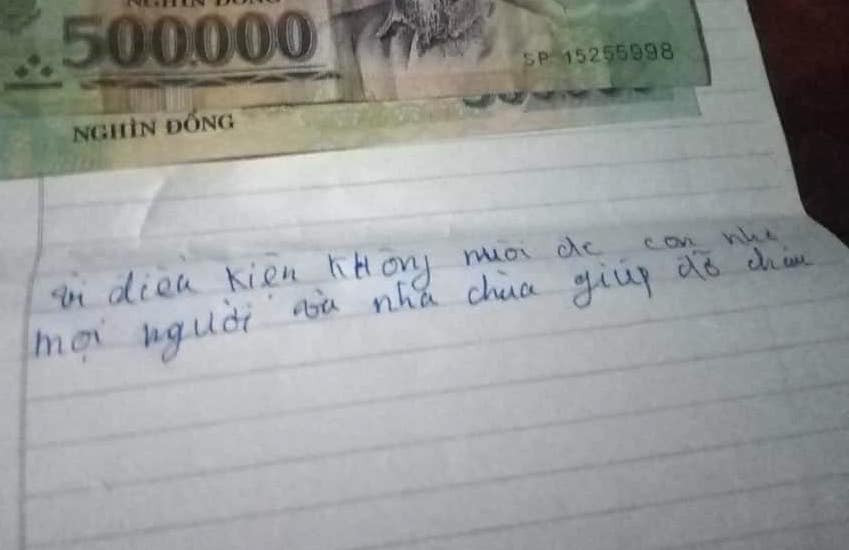 NGHÌN ĐỒNG
500.000
SP 15255998
NGHÌN ĐỒNG
vì điều kiện KHông nuôi dc con nhờ
mọi người và nhà chùa giúp đỡ cháu